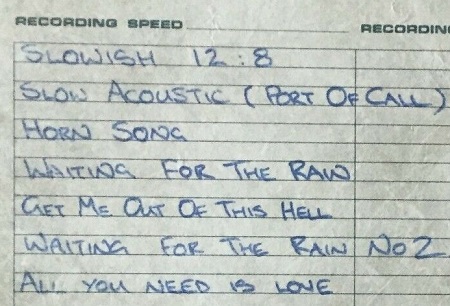 RECORDING SPEED
RECORDING
SLOWISH 12:8
SLOW ACOUSTIC (PORT OF CALL)
HORN SONG
WAITING FOR THE RAIN
GET ME OUT OF THIS HELL
WAITING FOR THE RAIN NO2
ALL YOU NEED IS LOVE